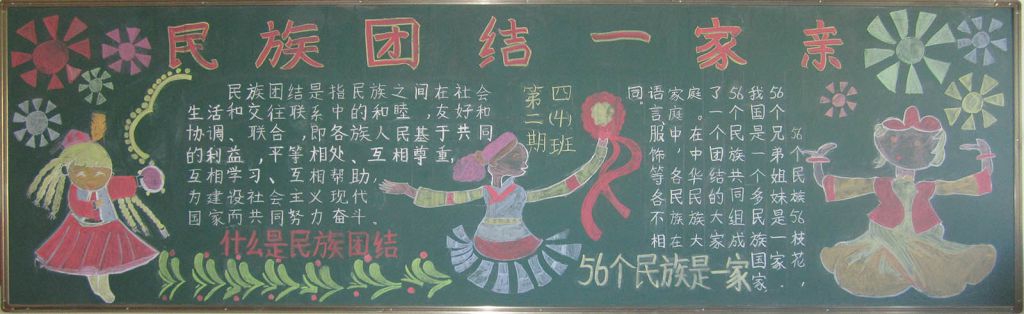 民族团结一家亲
民族团结是指民族之间,在社会
生活和交往联系中的和睦、友好和
协调、联合,即各族人民基于共同
的利益,平等相处、互相尊重,
互相学习、互相帮助,
为建设社会主义现代
国家而共同努力奋斗。
什么是民族团结
四(4)班
第二期
56个民族56枝花,
56个兄弟姐妹是一家,
我国是一个多民族国家.
56个民族共同组成
了一个团结的大家
庭。在中华民族大
家庭中,各民族在
语言服饰等各不相
同。
56个民族是一家